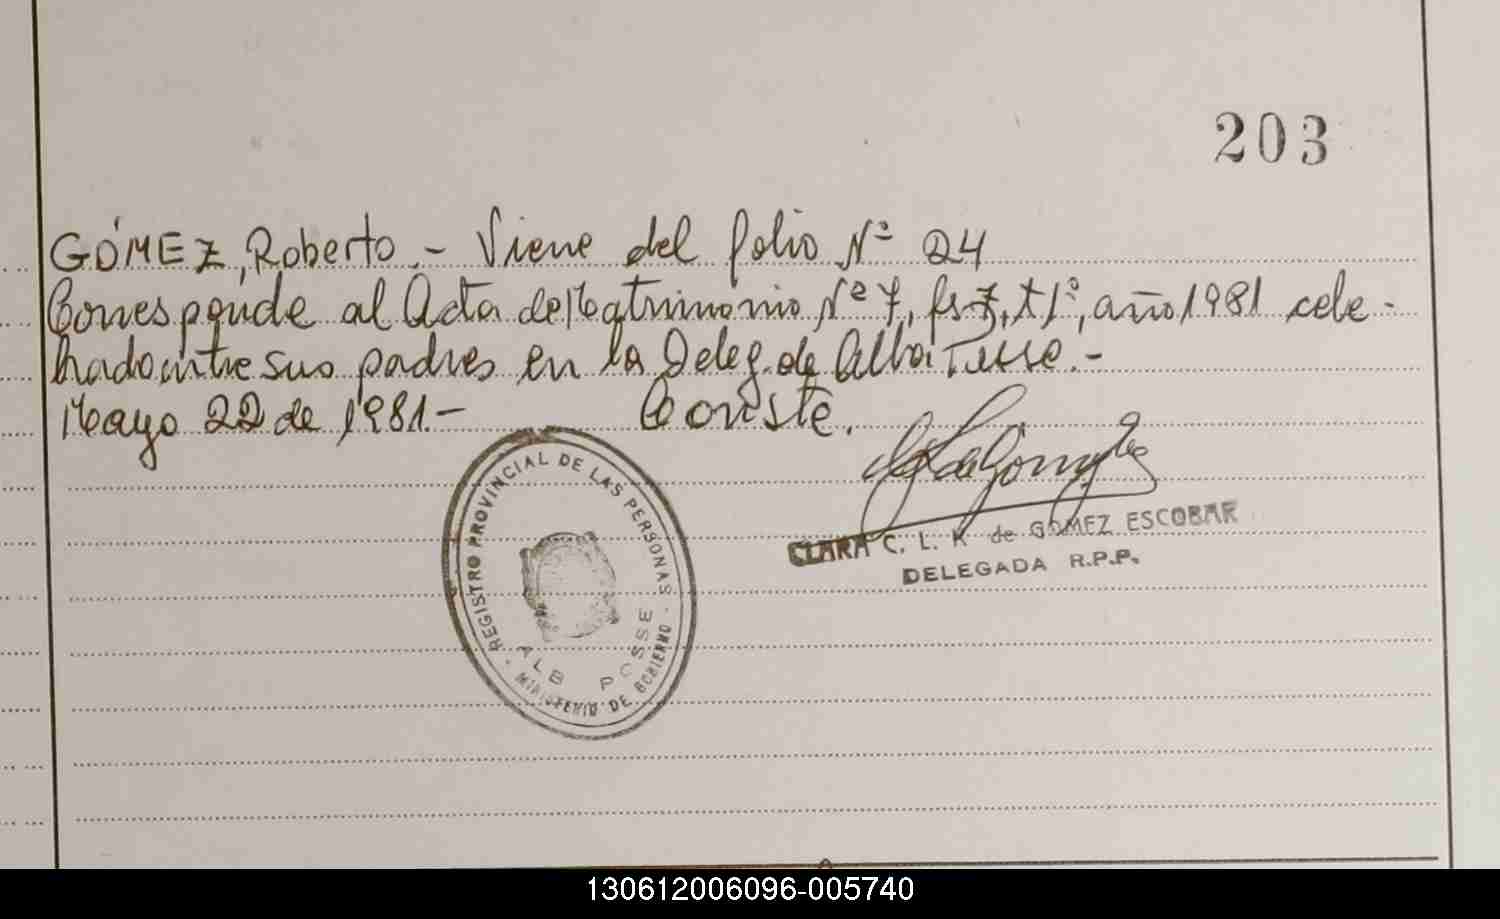 203
GÓMEZ, Roberto.- Viene del folio Nº 24
Corresponde al Acta de Matrimonio Nº 7, fs. 7, t 1º, año 1981 cele-
brado entre sus padres en la Deleg. de Albaitusse.-
Mayo 22 de 1981.- Conste.
CLARA C. L. K de GOMEZ ESCOBAR
DELEGADA R.P.P.
REGISTRO PROVINCIAL DE LAS PERSONAS
ALB POSSE
MINISTERIO DE GOBIERNO
130612006096-005740